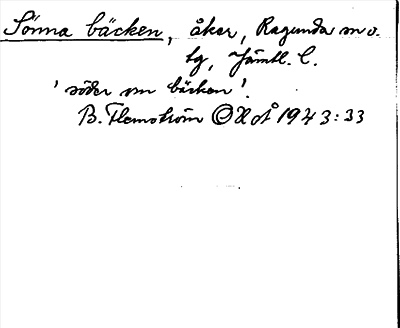 Sönna bäcken, åker, Ragunda sn o.
tg, Jämtl. l.
'söder om bäcken'.
B. Flemström OHOÅ 1943:33